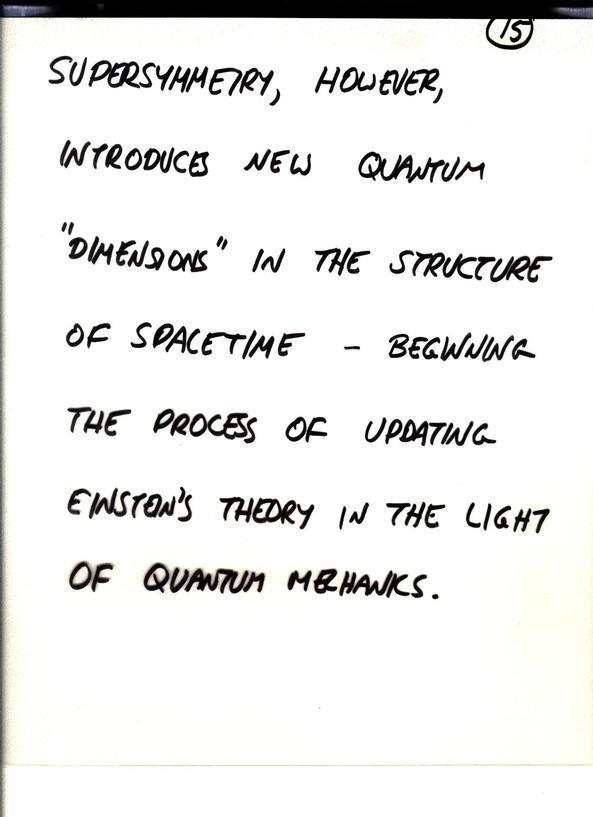 15
SUPERSYMMETRY, HOWEVER,
INTRODUCES NEW QUANTUM
"DIMENSIONS" IN THE STRUCTURE
OF SPACETIME – BEGINNING
THE PROCESS OF UPDATING
EINSTEIN'S THEORY IN THE LIGHT
OF QUANTUM MECHANICS.